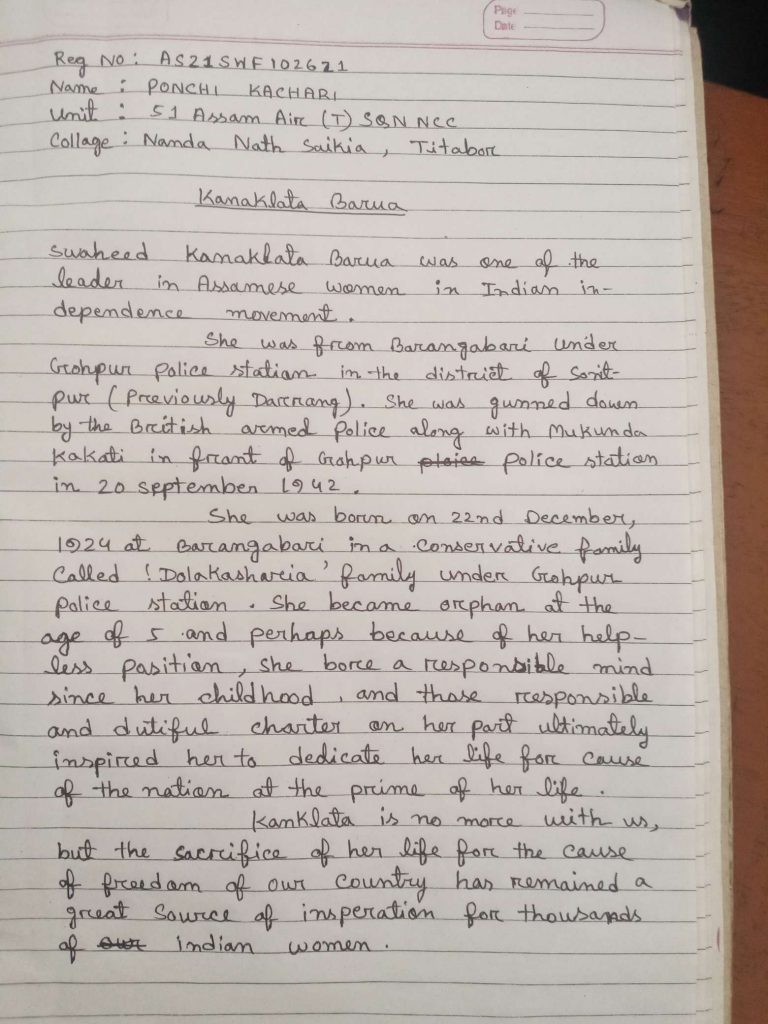 Page
Date
Reg No: AS21SWF102621
Name : PONCHI KACHARI
Unit : 51 Assam Air (T) SQN NCC
Collage : Nanda Nath Saikia, Titabor
Kanaklata Barua
Swaheed Kanaklata Barua was one of the
leader in Assamese women in Indian in-
dependence movement.
She was from Barangabari under
Gohpur police station in the district of Sonit-
pur (Previously Darrang). She was gunned down
by the British armed police along with Mukunda
Kakati in front of Gohpur ploice police station
in 20 september 1942.
She was born on 22nd December,
1924 at Barangabari in a conservative family
called 'Dolakasharia' family under Gohpur
police station. She became orphan at the
age of 5 and perhaps because of her help-
less position, She bore a responsible mind
since her childhood, and those responsible
and dutiful charter on her part ultimately
inspired her to dedicate her life for cause
of the nation at the prime of her life.
Kanklata is no more with us,
but the sacrifice of her life for the cause
of freedom of our country has remained a
great source of insperation for thousands
of our indian women.